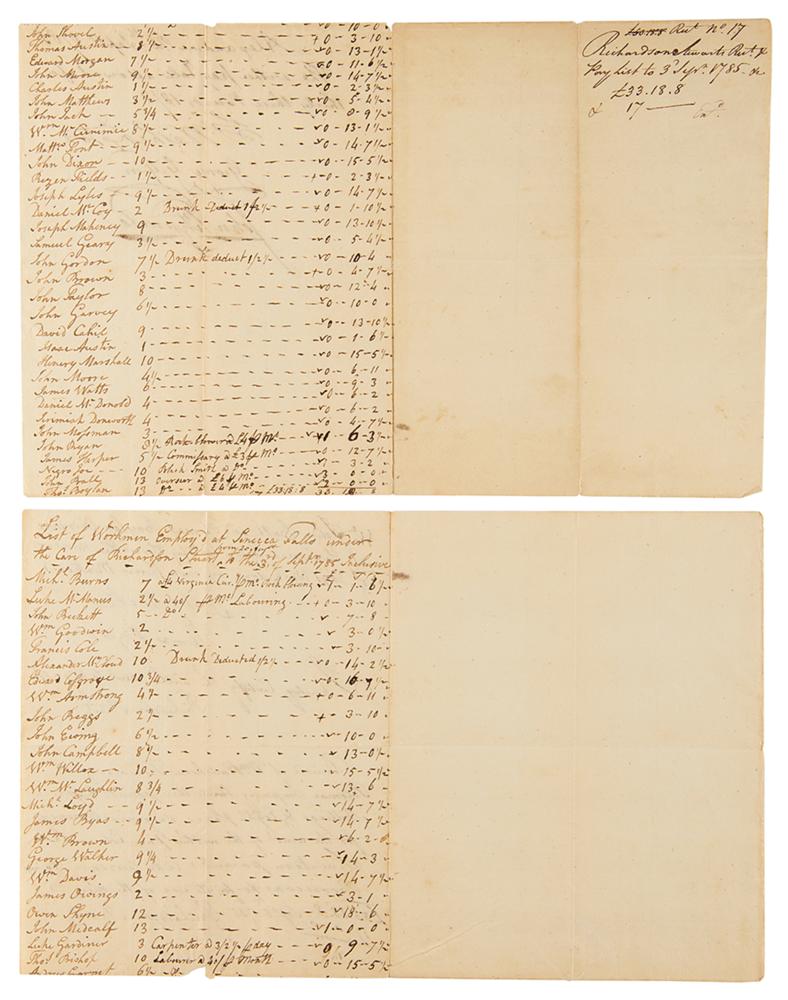 John Shovel 2½ +0 - 3 - 10
Thomas Austin 8½ v0 - 13 - 1½
Edward Morgan 7½ v0 - 11 - 6½
John Moore 9½ v0 - 14 - 7½
Charles Austin 1½ v0 - 2 - 3½
John Matthews 3½ v0 - 5 - 4½
John Jack 5¾ v0 - 0 - 9½
Wm. Mc 8½ v0 - 13 - 1½
Matts. Font 9½ v0 - 14 - 7½
John Dixon 10 v0 - 15 - 5½
Rezen Fields 1½ +0 - 2 - 3½
Joseph Lyles 9½ v0 - 14 - 7½
Daniel McCoy 2 Drunk deduct 1/2½ +0 - 1 - 10½
Joseph Mahoney 9 v0 - 13 - 10½
Samuel Geary 3½ v0 - 5 - 4½
John Gordon 7½ Drunk deduct 1/2½ v0 - 10 - 4
John Brown 3 +0 - 4 - 7½
John Taylor 8 v0 - 12 - 4
John Garvey 6½ v0 - 10 - 0
David Cahil 9 v0 - 13 - 10½
Isaac Austin 1 v0 - 1 - 6½
Henery Marshall 10 v0 - 15 - 5½
John Moore 4½ v0 - 6 - 11
James Watts 6 v0 - 9 - 3
Daniel McDonold 4 v0 - 6 - 2
Jeremiah Doneworth 4 v0 - 6 - 2
John Mossman 3 v0 - 4 - 7½
John Ryan 8½ v1 6 - 3½
James Harper 5½ Commissary @ £3 ⅌ Mo. v0 - 12 - 7½
Nigro Joe 10 Black Smith @ Do. v1 - 3 - 2
John Ball 13 Overseer @ £6 ⅌ Mo. v3 - 0 - 0
Thos. Boylan 13 Do. @ £4 ⅌ Mo. v2 - 0 - 0
£33.18.8
Rect. No. 17
Richardson Stuarts Rect. &
Pay List to 3d Sepr. 1785
£33.18.8
17
List of Workmen Employ'd at Seneca Falls under
the Care of Richardson Stuart to the 3d of Septr. 1785 Inclusive
Michl. Burns 7 Virginia Cur. ⅌ Mo. 1 - 6½
Luke McManus 2½ @ 40/ ⅌ Mo. Labouring +0 - 3 - 10
John Beckett 5 Do. v 7 - 8
Wm. Goodwin 2 v 3 - 0½
Francis Cole 2½ v 3 - 10
Alexander McVoud 10 Drunk deducted 1/2½ v0 - 14 - 2½
Edward Cosgrove 10¾ v0 - 16 - 7½
Wm. Armstrong 4½ +0 - 6 - 11
John Beggs 2½ + - 3 - 10
John Ewing 6½ v - 10 - 0
John Campbell 8½ v - 13 - 0½
Wm. Willox 10 v 15 - 5½
Wm. McLaughlin 8¾ v 13 - 6
Michl. Loyd 9½ v 14 - 7½
James Byas 9½ v 14 - 7½
Wm. Brown 4 v 6 - 2
George Walker 9¼ v 14 - 3
Wm. Davis 9½ v 14 - 7½
James Owings 2 v 3 - 1
Owen Shyne 12 v 18 - 6
John Medcalf 13 v1 - 0 - 0
Luke Gardiner 3 Carpenter @ 3/2½ ⅌ day v0 9 - 7½
Thos. Bishop 10 Labourer @ 40/ ⅌ Month v0 - 15 - 5½